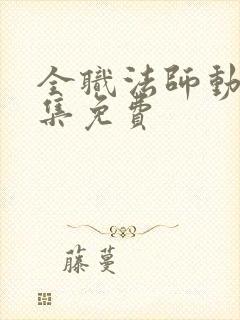 全職法師動
集免費
藤蔓